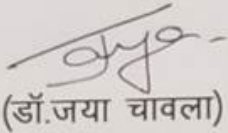 (डॉ.जया चावला)